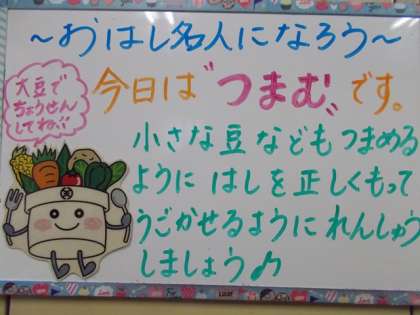 ～おはし名人になろう～
今日は〝つまむ〟です。
大豆で
ちょうせん
してね!!
小さな豆などもつまめる
ように はしを正しくもって
うごかせるように れんしゅう
しましょう♪